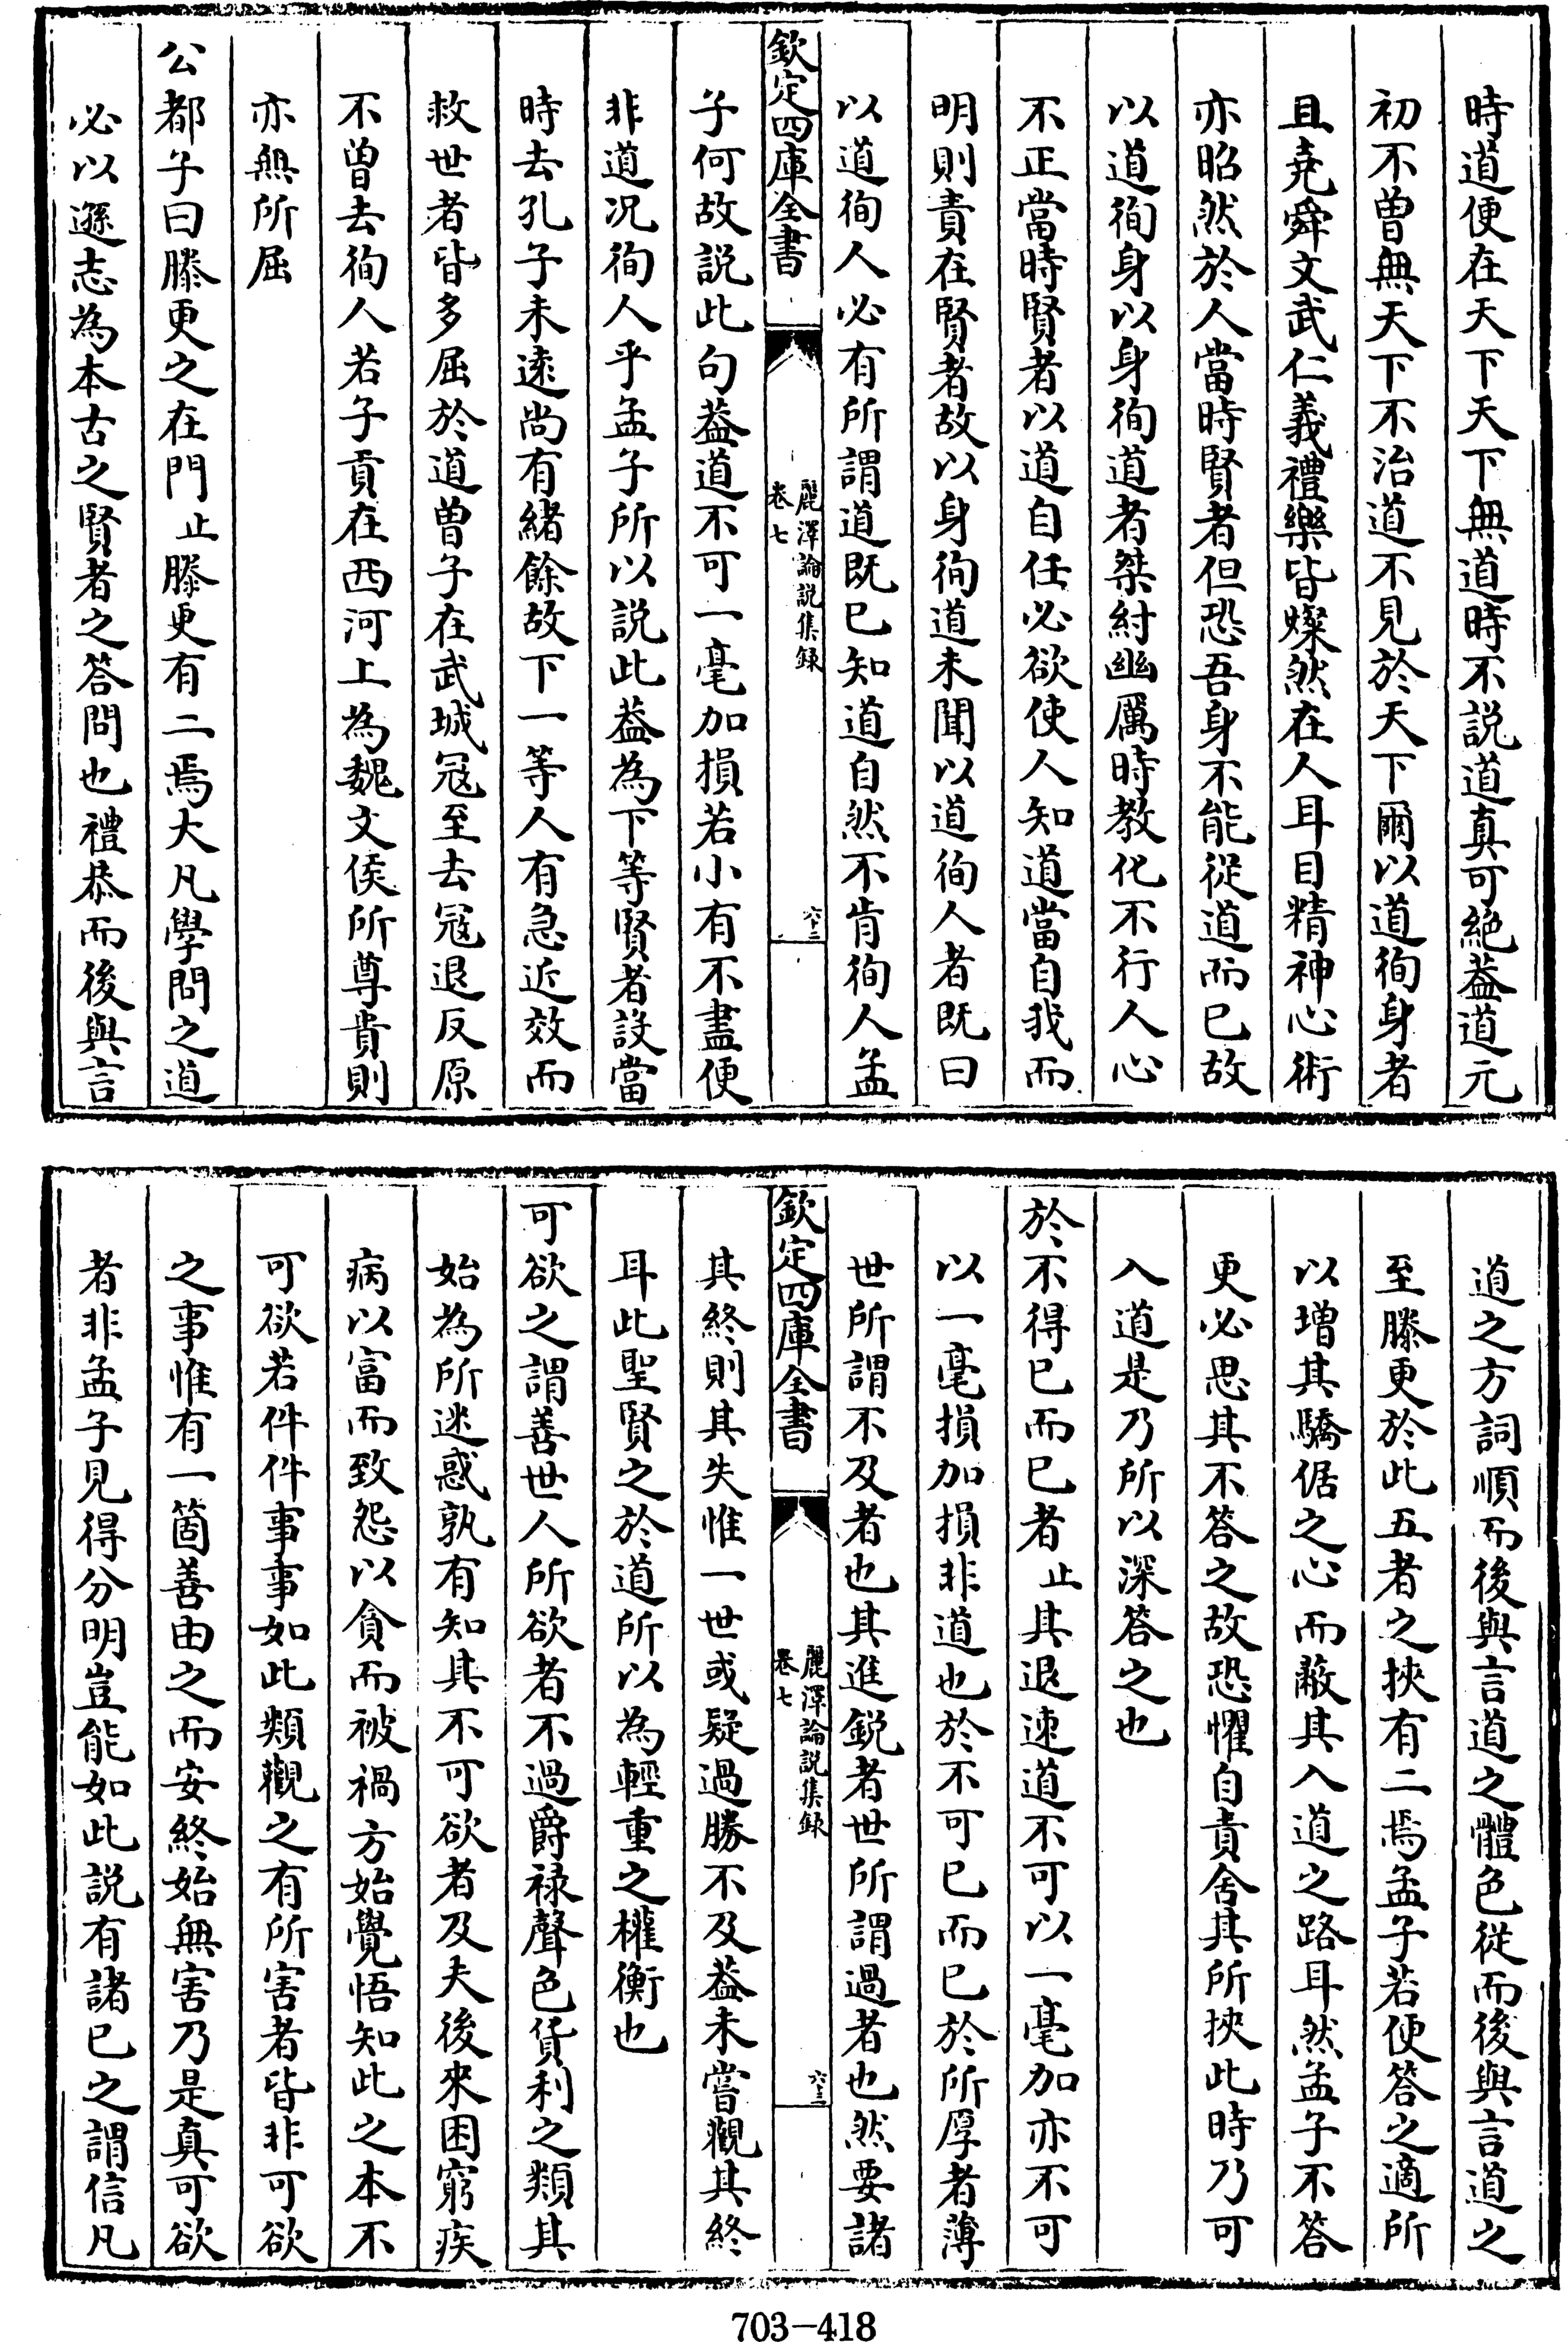 時道便在天下天下無道時不説道真可絶葢道元
初不曽無天下不治道不見於天下爾以道徇身者
且堯舜文武仁義禮樂皆燦然在人耳目精神心術
亦昭然於人當時賢者但恐吾身不能從道而已故
以道徇身以身徇道者桀紂幽厲時教化不行人心
不正當時賢者以道自任必欲使人知道當自我而
明則責在賢者故以身徇道未聞以道徇人者既曰
以道徇人必有所謂道既已知道自然不肯徇人孟
欽定四庫全書
麗澤論説集録
卷七
六十三
子何故説此句葢道不可一毫加損若小有不盡便
非道况徇人乎孟子所以説此葢為下等賢者設當
時去孔子未逺尚有緒餘故下一等人有急近效而
救世者皆多屈於道曽子在武城冦至去冦退反原
不曽去徇人若子貢在西河上為魏文侯所尊貴則
亦無所屈
公都子曰滕更之在門止滕更有二焉大凡學問之道
必以遜志為本古之賢者之答問也禮恭而後與言
道之方詞順而後與言道之體色從而後與言道之
至滕更於此五者之挾有二焉孟子若使答之適所
以增其驕倨之心而蔽其入道之路耳然孟子不答
更必思其不答之故恐懼自責舍其所挾此時乃可
入道是乃所以深答之也
於不得已而已者止其退速道不可以一毫加亦不可
以一毫損加損非道也於不可已而已於所厚者薄
世所謂不及者也其進鋭者世所謂過者也然要諸
欽定四庫全書
麗澤論説集録
卷七
六十三
其終則其失惟一世或疑過勝不及葢未嘗觀其終
耳此聖賢之於道所以為輕重之權衡也
可欲之謂善世人所欲者不過爵禄聲色貨利之類其
始為所迷惑孰有知其不可欲者及夫後來困窮疾
病以富而致怨以貪而被禍方始覺悟知此之本不
可欲若件件事事如此類觀之有所害者皆非可欲
之事惟有一箇善由之而安終始無害乃是真可欲
者非孟子見得分明豈能如此説有諸已之謂信凡
703-418